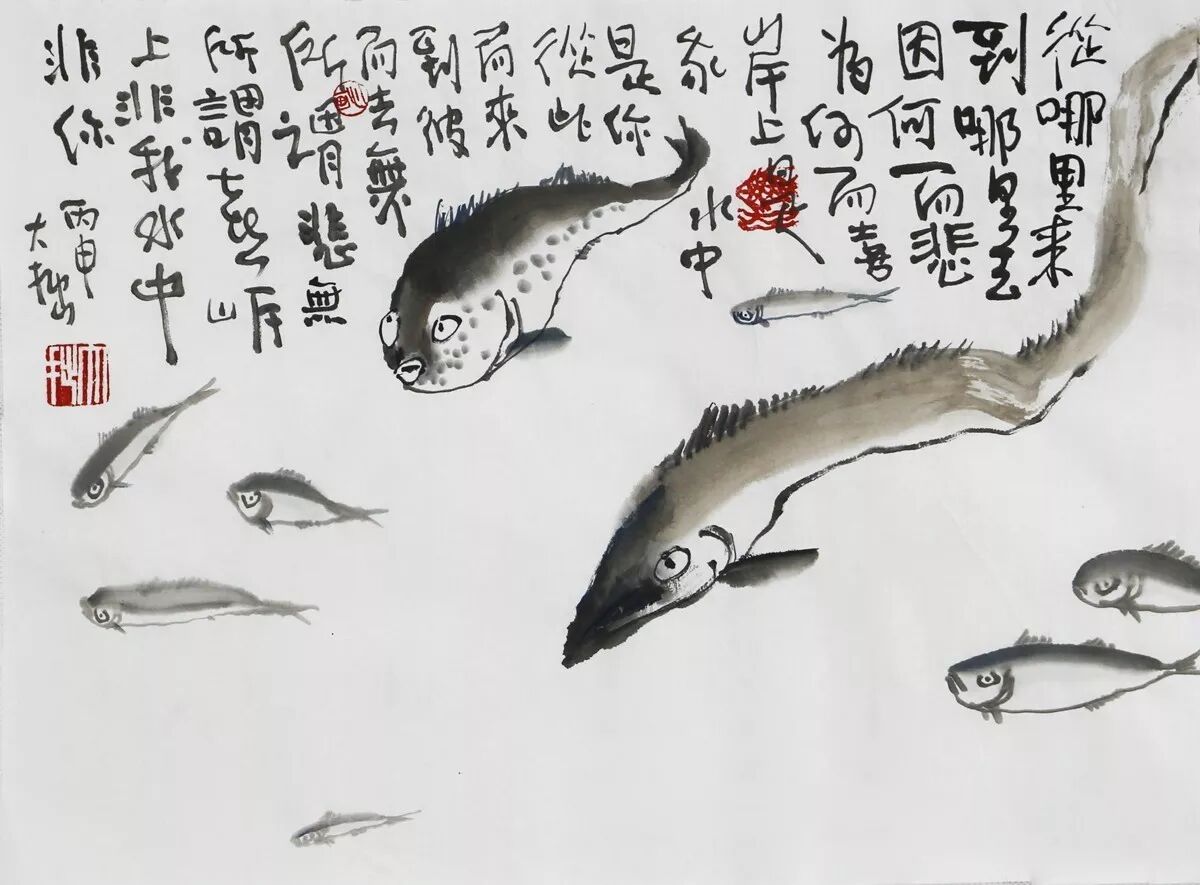 從哪里来
到哪里去
因何而悲
為何而喜
岸上是
我水中
是你
從此
而來
到彼
而去無
所謂悲無
所謂喜岸
上非我水中
非你
丙申
大拙